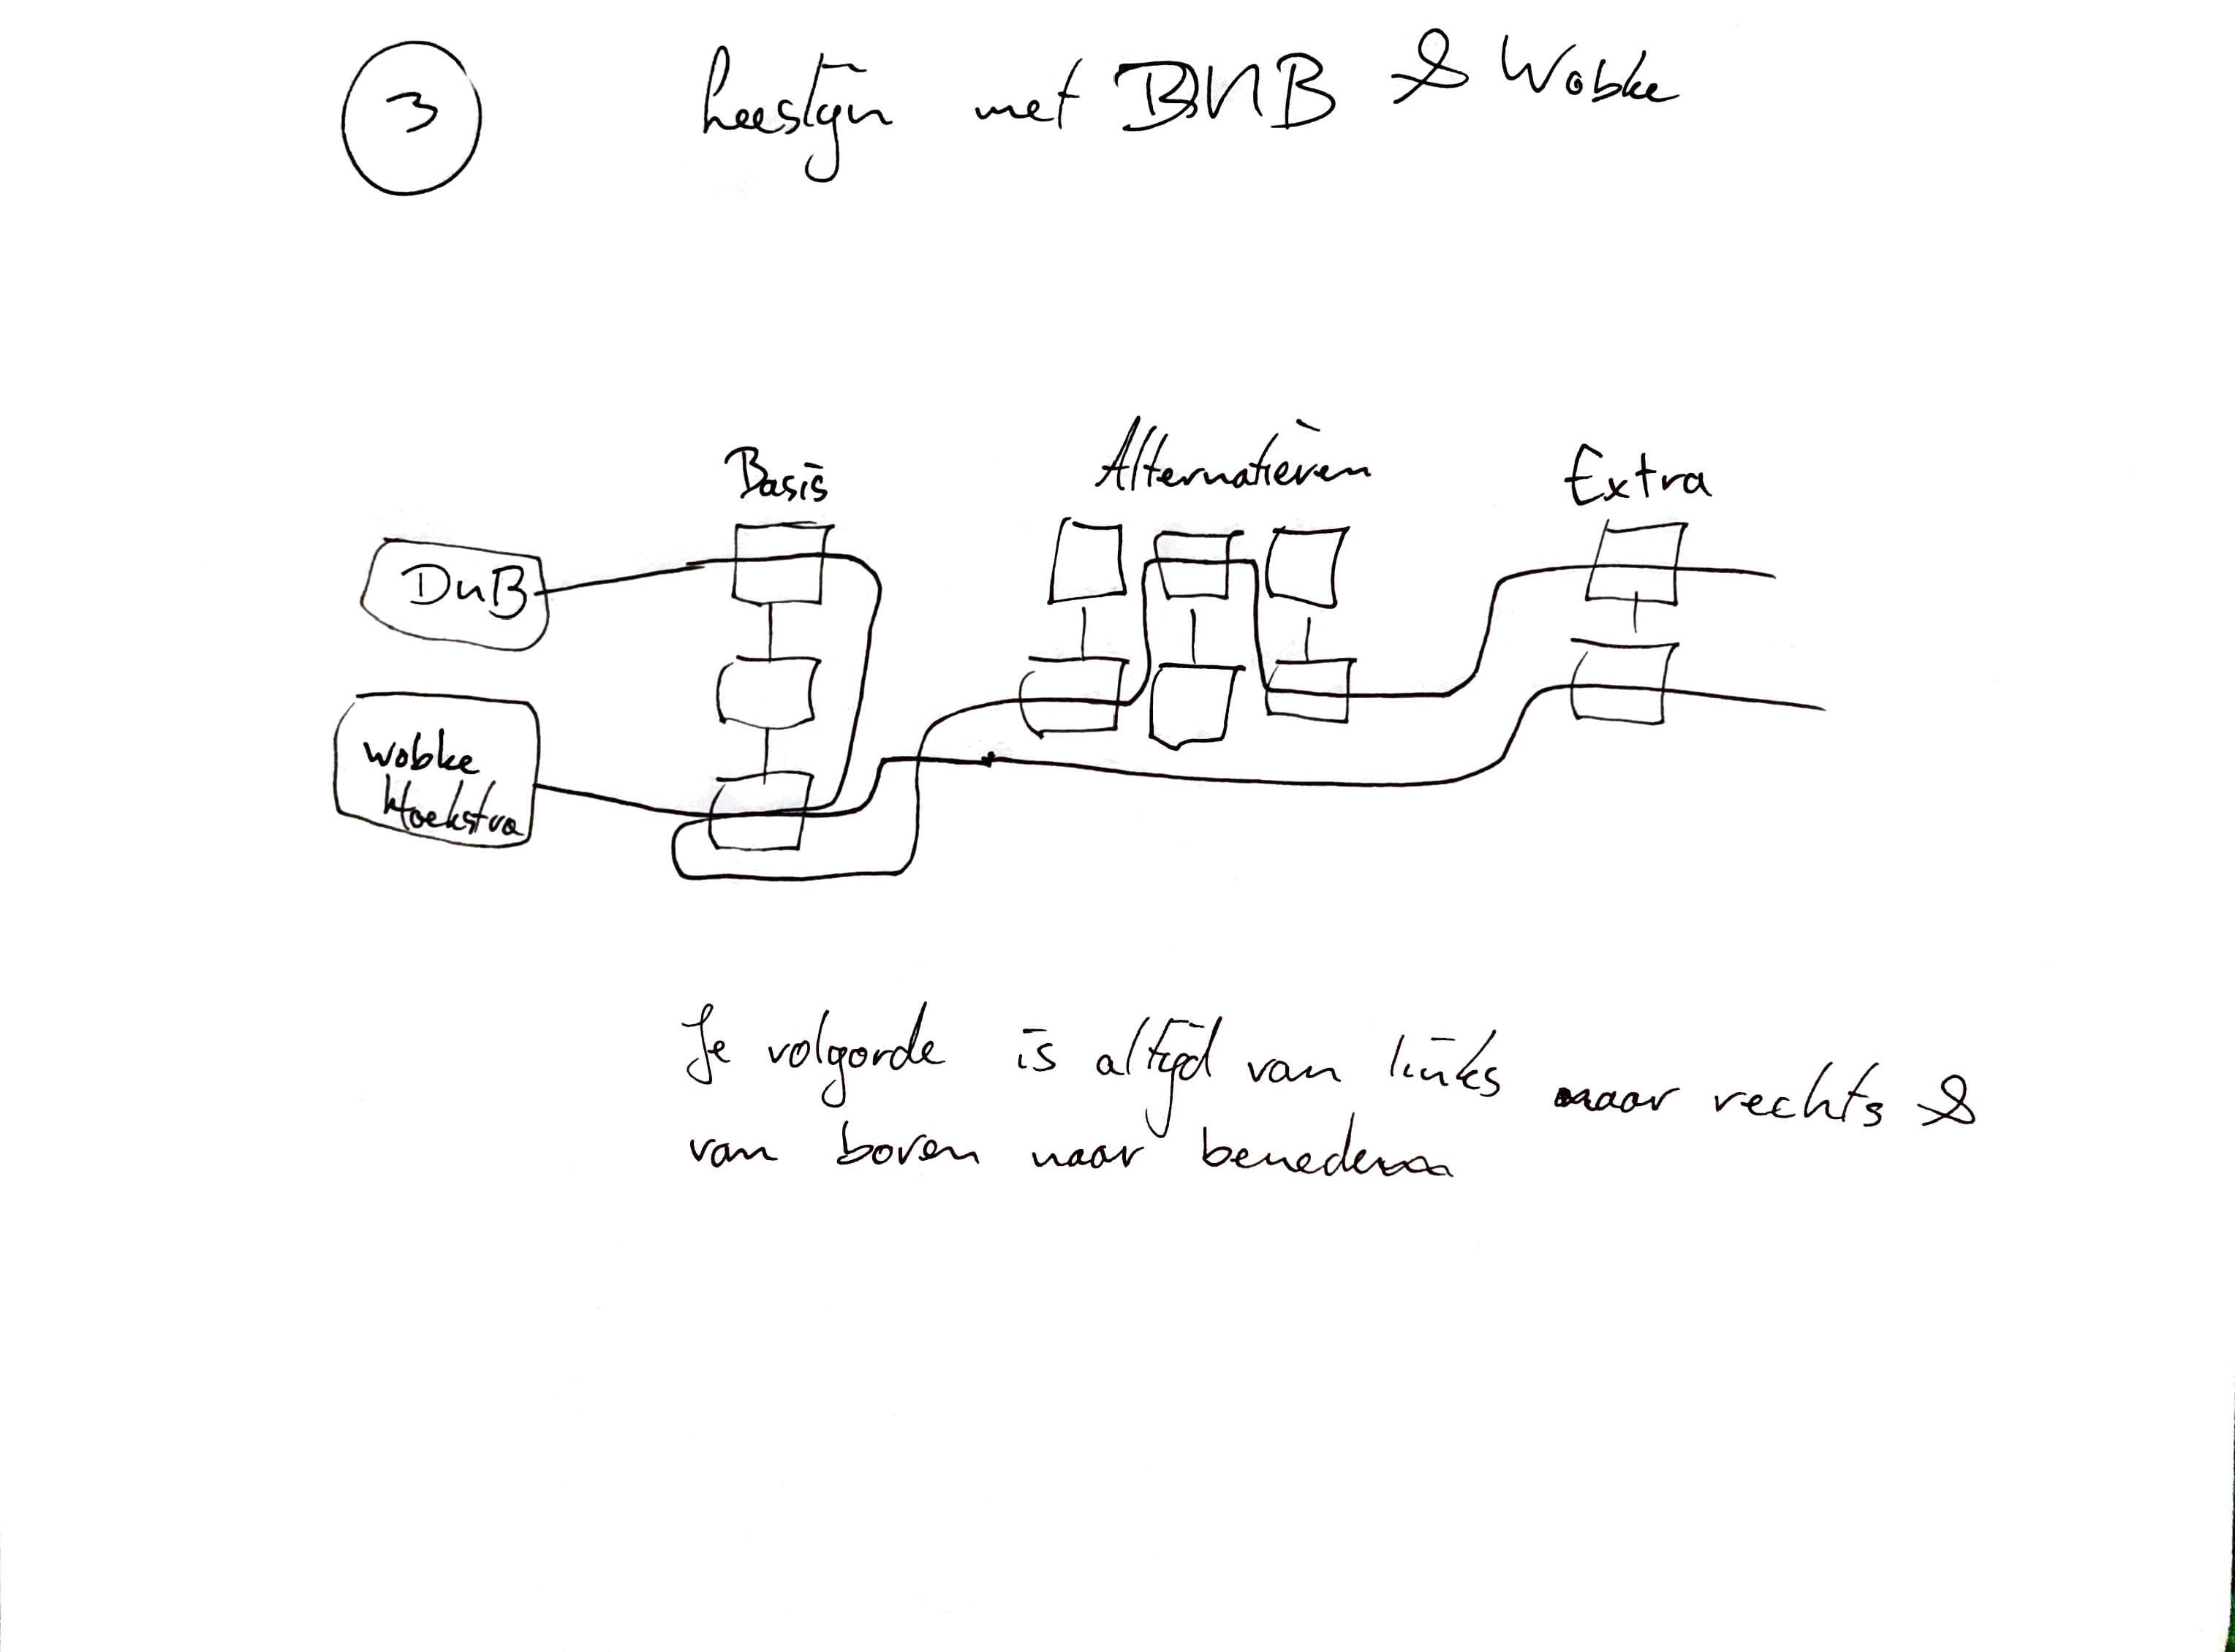 3
Leeslijn met BNB & Wobke
Basis
Alternatieven
Extra
DNB
Wobke
Hoekstra
Je volgorde is altijd van links naar rechts &
van boven naar beneden